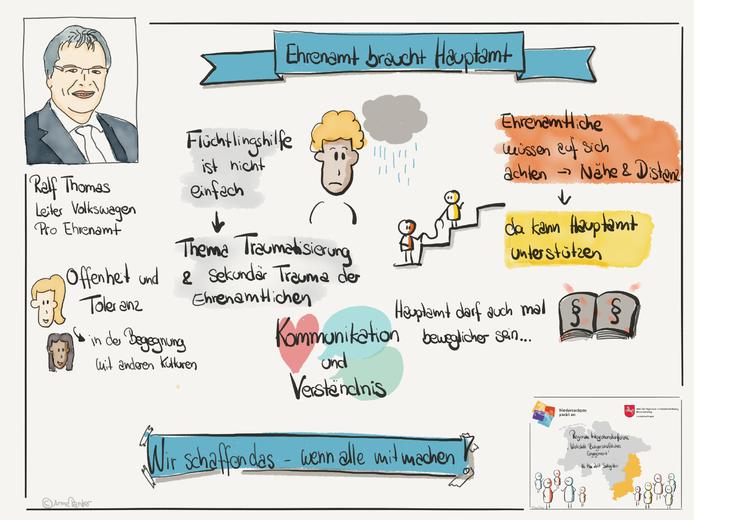 Ehrenamt braucht Hauptamt
Ralf Thomas
Leiter Volkswagen
Pro Ehrenamt
Flüchtlingshilfe
ist nicht
einfach
Thema Traumatisierung
& sekundär Trauma der
Ehrenamtlichen
Ehrenamtliche
müssen auf sich
achten → Nähe & Distanz
da kann Hauptamt
unterstützen
Offenheit und
Toleranz
in der Begegnung
mit anderen Kulturen
Kommunikation
und
Verständnis
Hauptamt darf auch mal
beweglicher sein...
§ §
Wir schaffen das - wenn alle mitmachen!
Niedersachsen
packt an
Regionale Integrationskonferenz
Engagement